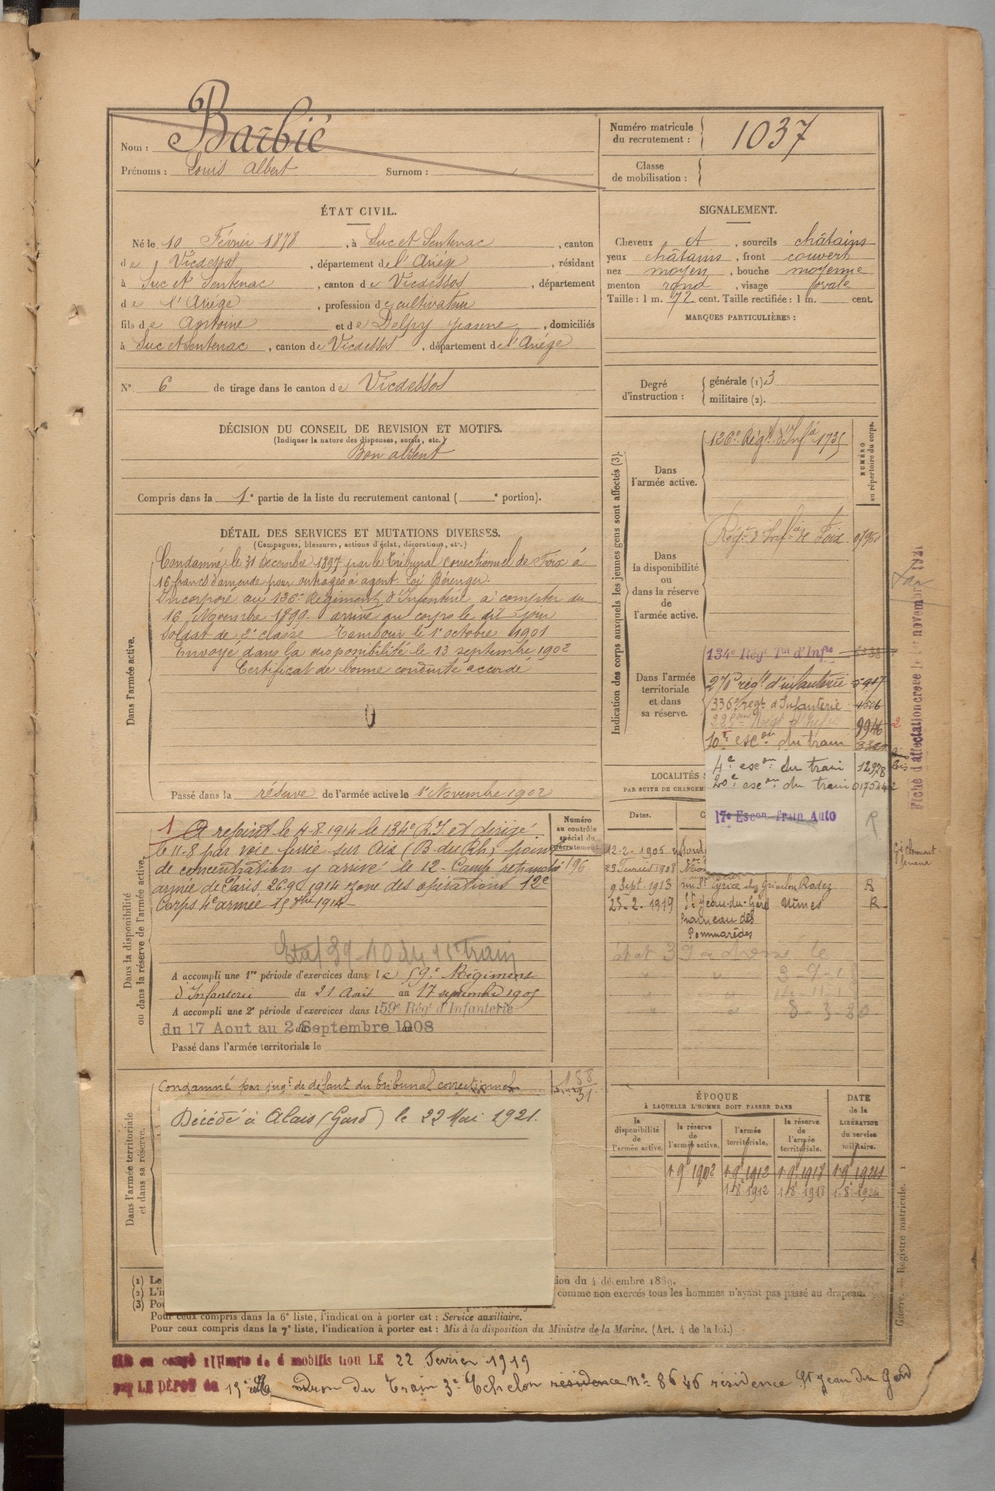 Nom : Barbié
Prénoms : Louis Albert Surnom :
Numéro matricule du recrutement : 1037
Classe de mobilisation :
ÉTAT CIVIL.
Né le 10 Février 1878, à Suc et Sentenac, canton
de Vicdessos, département de l'Ariège, résidant
à Suc et Sentenac, canton de Vicdessos, département
de l'Ariège, profession de cultivateur
fils de Antoine et de Delpy Jeanne, domiciliés
à Suc et Sentenac, canton de Vicdessos, département de l'Ariège
N° 6 de tirage dans le canton de Vicdessos
SIGNALEMENT.
Cheveux et, sourcils châtains
yeux châtains, front couvert
nez moyen, bouche moyenne
menton rond, visage ovale
Taille : 1 m. 72 cent. Taille rectifiée : 1 m. cent.
MARQUES PARTICULIÈRES :
Degré d'instruction : générale (1) 3
militaire (2).
DÉCISION DU CONSEIL DE REVISION ET MOTIFS.
(Indiquer la nature des dispenses, sursis, etc.)
Bon absent
Compris dans la 1e partie de la liste du recrutement cantonal ( e portion).
DÉTAIL DES SERVICES ET MUTATIONS DIVERSES.
(Campagnes, blessures, actions d'éclat, décorations, etc.)
Dans l'armée active.
Condamné le 31 décembre 1897 par le Tribunal correctionnel de Foix à
16 francs d'amende pour outrages à agent Loi Bérenger
Incorporé au 126e Régiment d'Infanterie à compter du
16 Novembre 1899 arrivé au corps le dit jour
Soldat de 2e classe Tambour le 1er octobre 1901
Envoyé dans la disponibilité le 13 septembre 1902
Certificat de bonne conduite accordé
Passé dans la réserve de l'armée active le 1er Novembre 1902
Numéro au contrôle spécial du recrutement
Dans la disponibilité ou dans la réserve de l'armée active.
A rejoint le 4-8 1914 le 134e R.T et dirigé
le 11-8 par voie ferrée sur
de concentration y arrivé le 12- Camp retranché 196
armée de Paris 26 9 1914 zone des opérations 12e
Corps 4e armée 1914
A accompli une 1re période d'exercices dans le 59e Régiment
d'Infanterie du 21 Août au 17 septembre 1905
A accompli une 2e période d'exercices dans le 59e Rég d'Infanterie
du 17 Aout au 2 Septembre 1908
Passé dans l'armée territoriale le
Dans l'armée territoriale et dans sa réserve.
Condamné par jugt de défaut du tribunal correctionnel
Décédé à Alais (Gard) le 22 Mai 1921.
Indication des corps auxquels les jeunes gens sont affectés (3).
NUMÉRO au répertoire du corps.
Dans l'armée active.
126e Régt d'Infie 1735
Dans la disponibilité ou dans la réserve de l'armée active.
Régt d'Infie de Foix
Dans l'armée territoriale et dans sa réserve.
134e Régt Tal d'Infie
270e régt d'infanterie
336e régt d'Infanterie
10e escon du train
4e escon du train 12378
20e escon du train
17e Escon Train Auto
R
Fiche d'affectation crée le 1er novembre 1921
LOCALITÉS
PAR SUITE DE CHANGEM
Dates.
12-2-1905
23 Février 1908
9 Sept. 1913 Rodez R
23-2-1919 St Jean-du-Gard Nimes R
hameau des
Pommarèdes
ÉPOQUE
À LAQUELLE L'HOMME DOIT PASSER DANS
la disponibilité de l'armée active.
la réserve de l'armée active.
l'armée territoriale.
la réserve de l'armée territoriale.
DATE de la LIBÉRATION du service militaire.
1 9e 1902 1 9e 1912 1 9e 1918
1 8e 1912 1 8e 1918 1 8e 1924
(1) Le
(2) L'in
(3) Pou
ion du 4 décembre 1889.
comme non exercés tous les hommes n'ayant pas passé au drapeau.
Pour ceux compris dans la 6e liste, l'indication à porter est : Service auxiliaire.
Pour ceux compris dans la 7e liste, l'indication à porter est : Mis à la disposition du Ministre de la Marine. (Art. 4 de la loi.)
Registre matricule. 1
LE 22 Fevrier 1919
par LE DÉPOT du 19e du Train 3e Echelon résidence St Jean du Gard